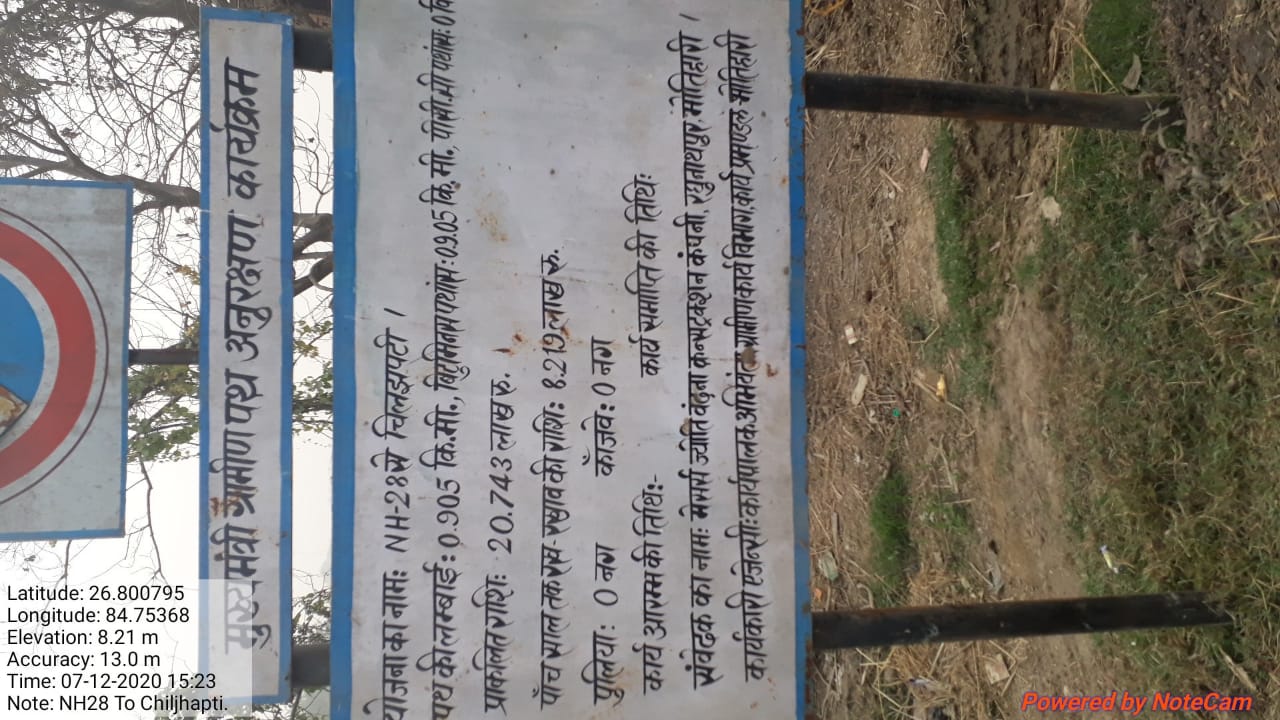 मुख्यमंत्री ग्रामीण पथ अनुरक्षण कार्यक्रम
योजना का नाम: NH-28 से चिलझपटी ।
पथ की लम्बाई: 0.905 कि.मी., बिटुमिनस पथांश: 0.905 कि.मी., पी.सी.सी पथांश: 0 कि
प्राकलित राशि: 20.743 लाख रु.
पाँच साल तक रख रखाव की राशि: 8.219 लाख रु.
पुलिया: 0 नग कॉजवे: 0 नग
कार्य आरम्भ की तिथि:- कार्य समाप्ति की तिथि:
संवेदक का नाम: मेसर्स ज्योति वंदना कन्स्ट्रक्शन कंपनी, रघुनाथपुर, मोतिहारी ।
कार्यकारी एजेन्सी: कार्यपालक अभियंता ग्रामीण कार्य विभाग, कार्य प्रमण्डल, मोतिहारी
Latitude: 26.800795
Longitude: 84.75368
Elevation: 8.21 m
Accuracy: 13.0 m
Time: 07-12-2020 15:23
Note: NH28 To Chiljhapti.
Powered by NoteCam